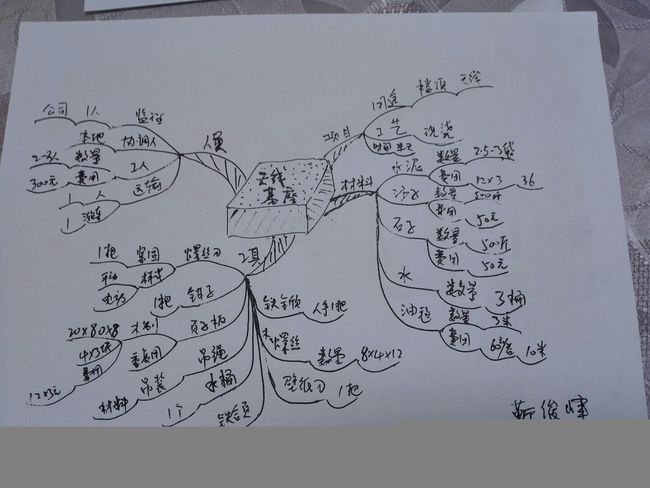 天线
基座
人员
公司 1人 监控
基地 协调人
2-3人 数量 工人
300元 费用
1 人 运输
1
项目
用途 楼顶 天坛
工艺 浇浇
时间
材料
水泥 数量 2.5-3袋
费用 12×3 36
沙子 数量 500斤
费用 50元
石子 数量 500斤
费用 50元
水 数量 3桶
油毡 数量 3米
费用 10米
工具
1把 紧固 螺丝刀
电动
1把 钳子
20×80×8
4×3块
费用
12×3元
材料 吊装 吊绳
1个 水桶
铁锨
铁锨 人手1把
木螺丝 数量 8×4×12
壁纸刀 1把
靳俊峰